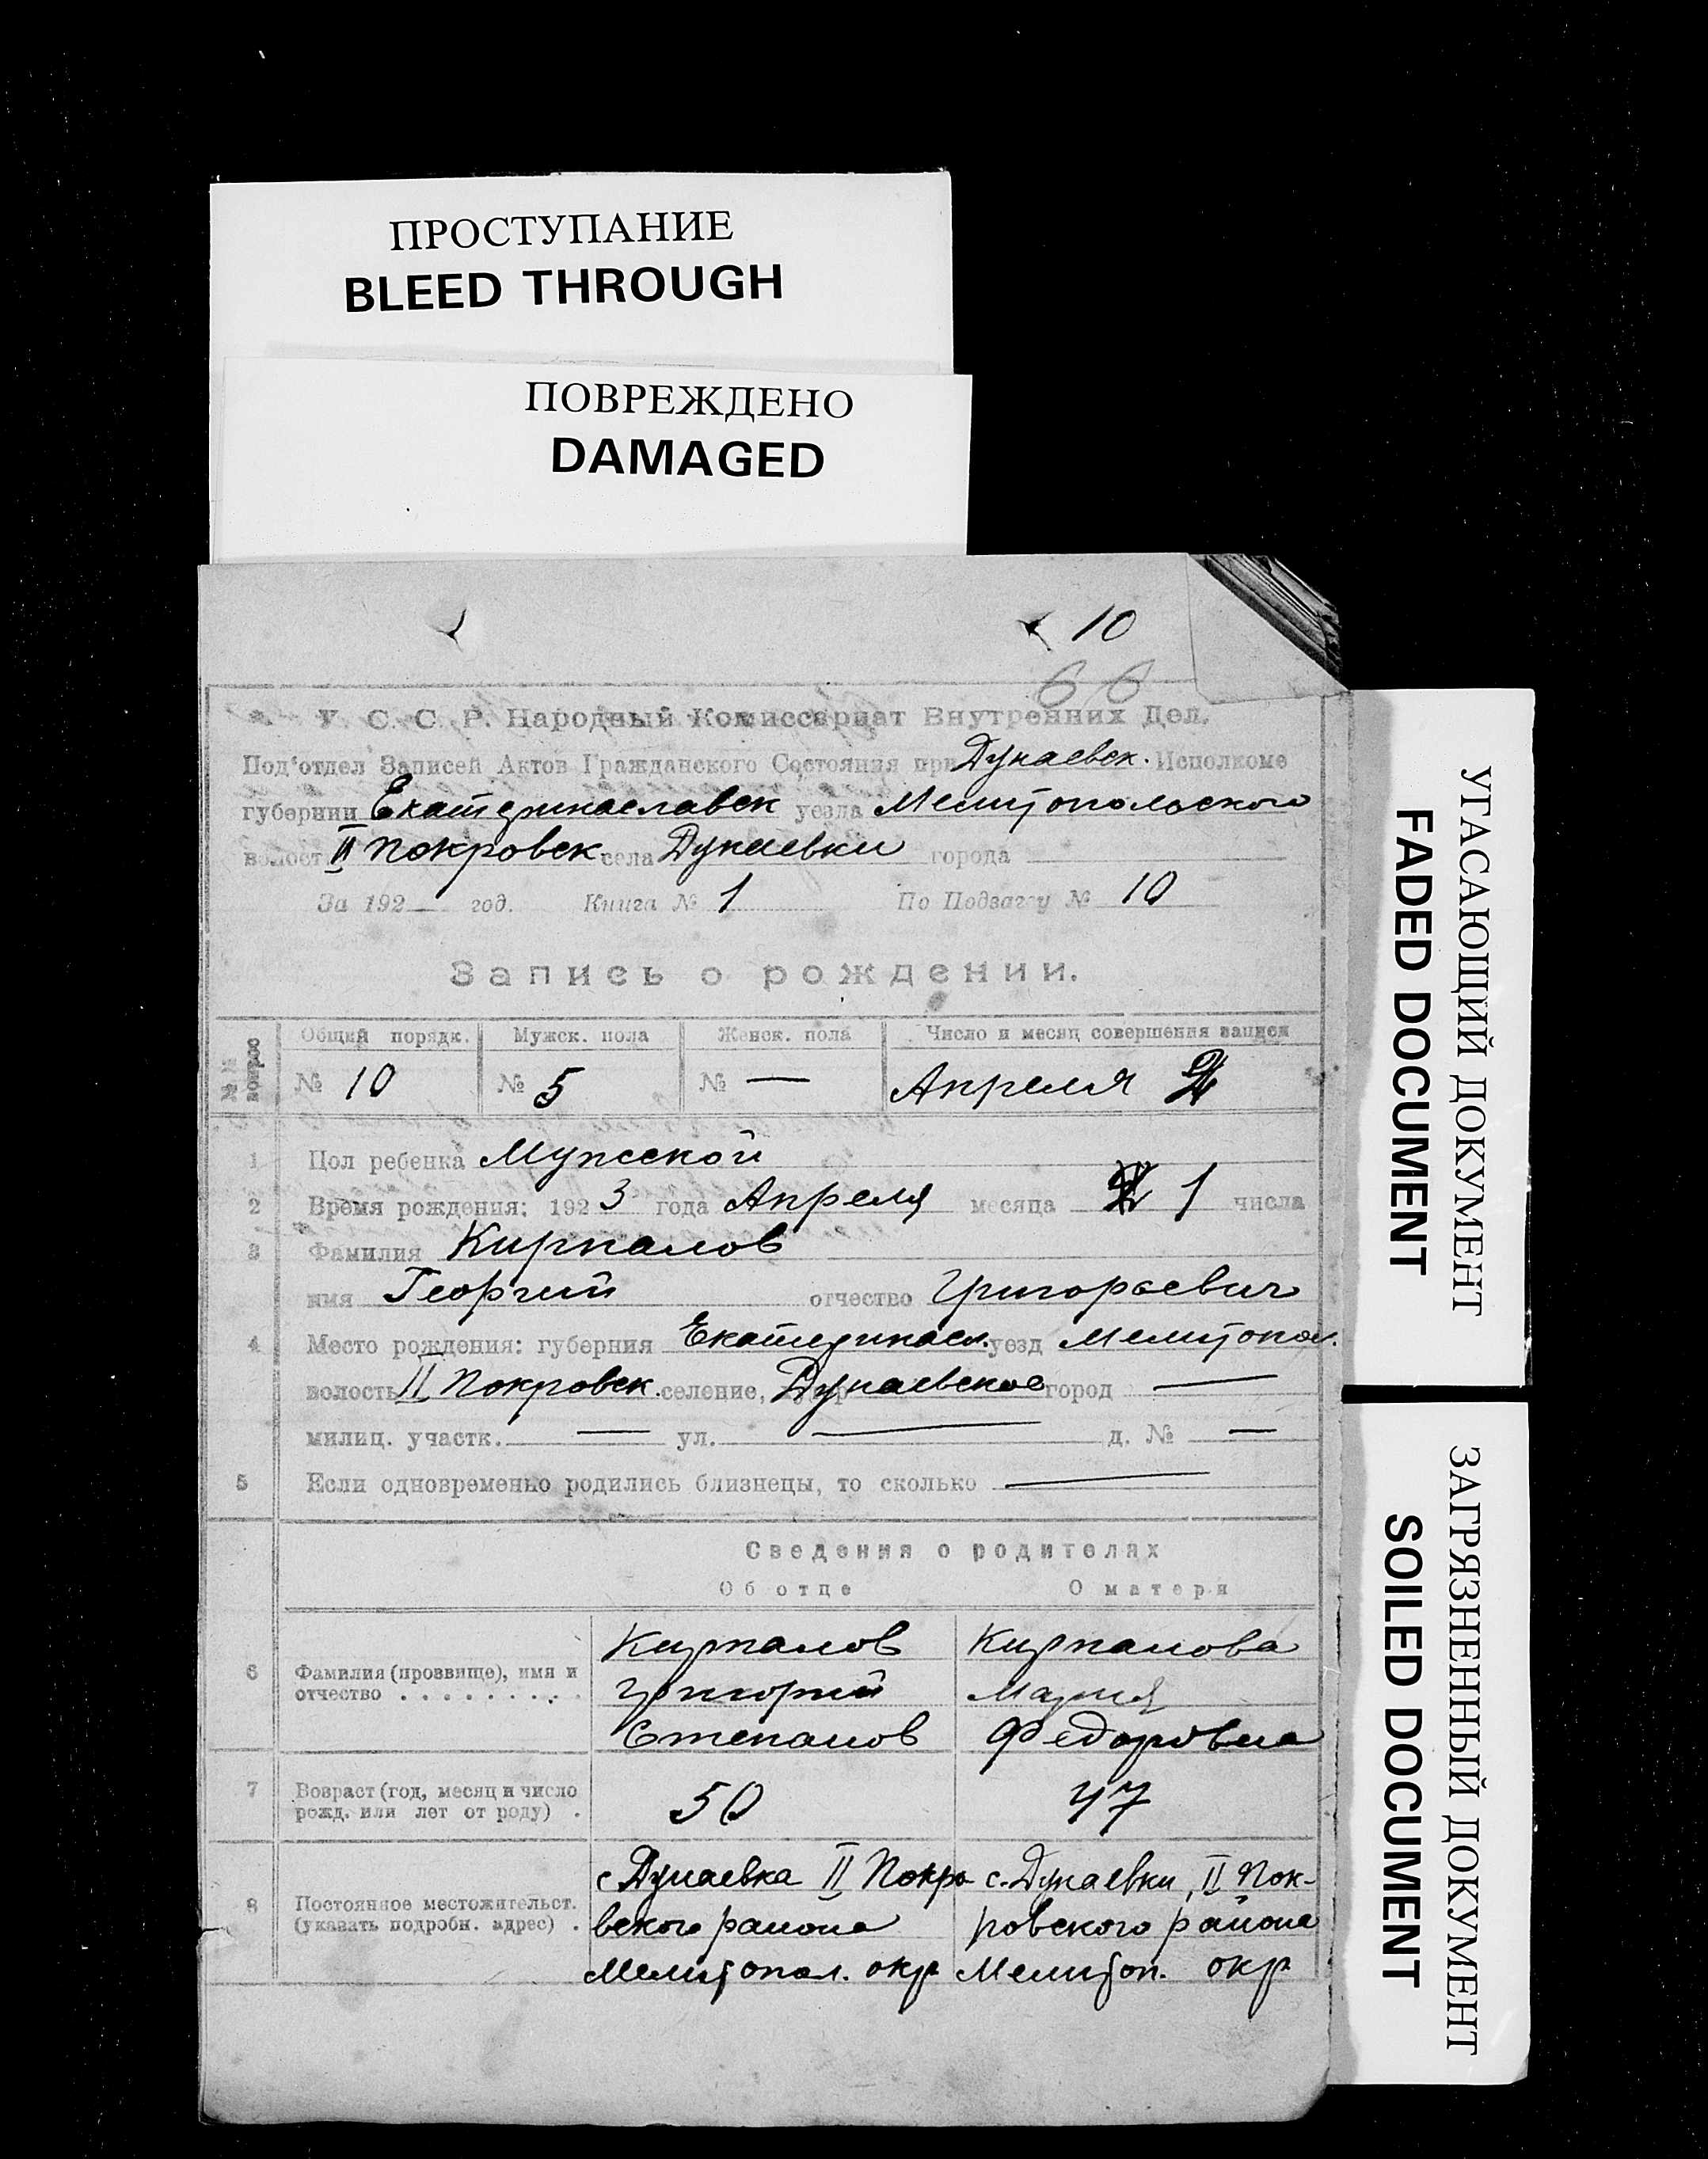 ПРОСТУПАНИЕ
BLEED THROUGH
ПОВРЕЖДЕНО
DAMAGED
10
66
У. С. С. Р. Народный Комиссариат Внутренних Дел.
Под'отдел Записей Актов Гражданского Состояния при Дунаевск. Исполкоме
губернии Екатеринаславск уезда Мелитопольского
волост II Покровск. села Дунаевки города
За 192 год. Книга № 1 По Подзагсу № 10
Запись о рождении.
№№ вопрос
Общий порядк. Мужск. пола Женск. пола Число и месяц совершения записи
№ 10 № 5 № — Апреля 2
1 Пол ребенка Мужской
2 Время рождения: 1923 года Апреля месяца 1 числа
3 Фамилия Кирпалов
имя Георгий отчество Григорьевич
4 Место рождения: губерния Екатеринасл. уезд Мелитопол.
волость II Покровск. селение, Дунаевское город —
милиц. участк. — ул. — д. № —
5 Если одновременно родились близнецы, то сколько —
Сведения о родителях
Об отце О матери
6 Фамилия (прозвище), имя и отчество . . . . . . . . .
Кирпалов Кирпалова
Григорий Мария
Степанов Федоровна
7 Возраст (год, месяц и число рожд. или лет от роду) .
50 47
8 Постоянное местожительст. (указать подробн. адрес) .
с Дунаевка II Покро с. Дунаевки, II Пок-
вского раиона ровского раиона
Мелитопол. окр Мелитоп. окр
УГАСАЮЩИЙ ДОКУМЕНТ
FADED DOCUMENT
ЗАГРЯЗНЕННЫЙ ДОКУМЕНТ
SOILED DOCUMENT